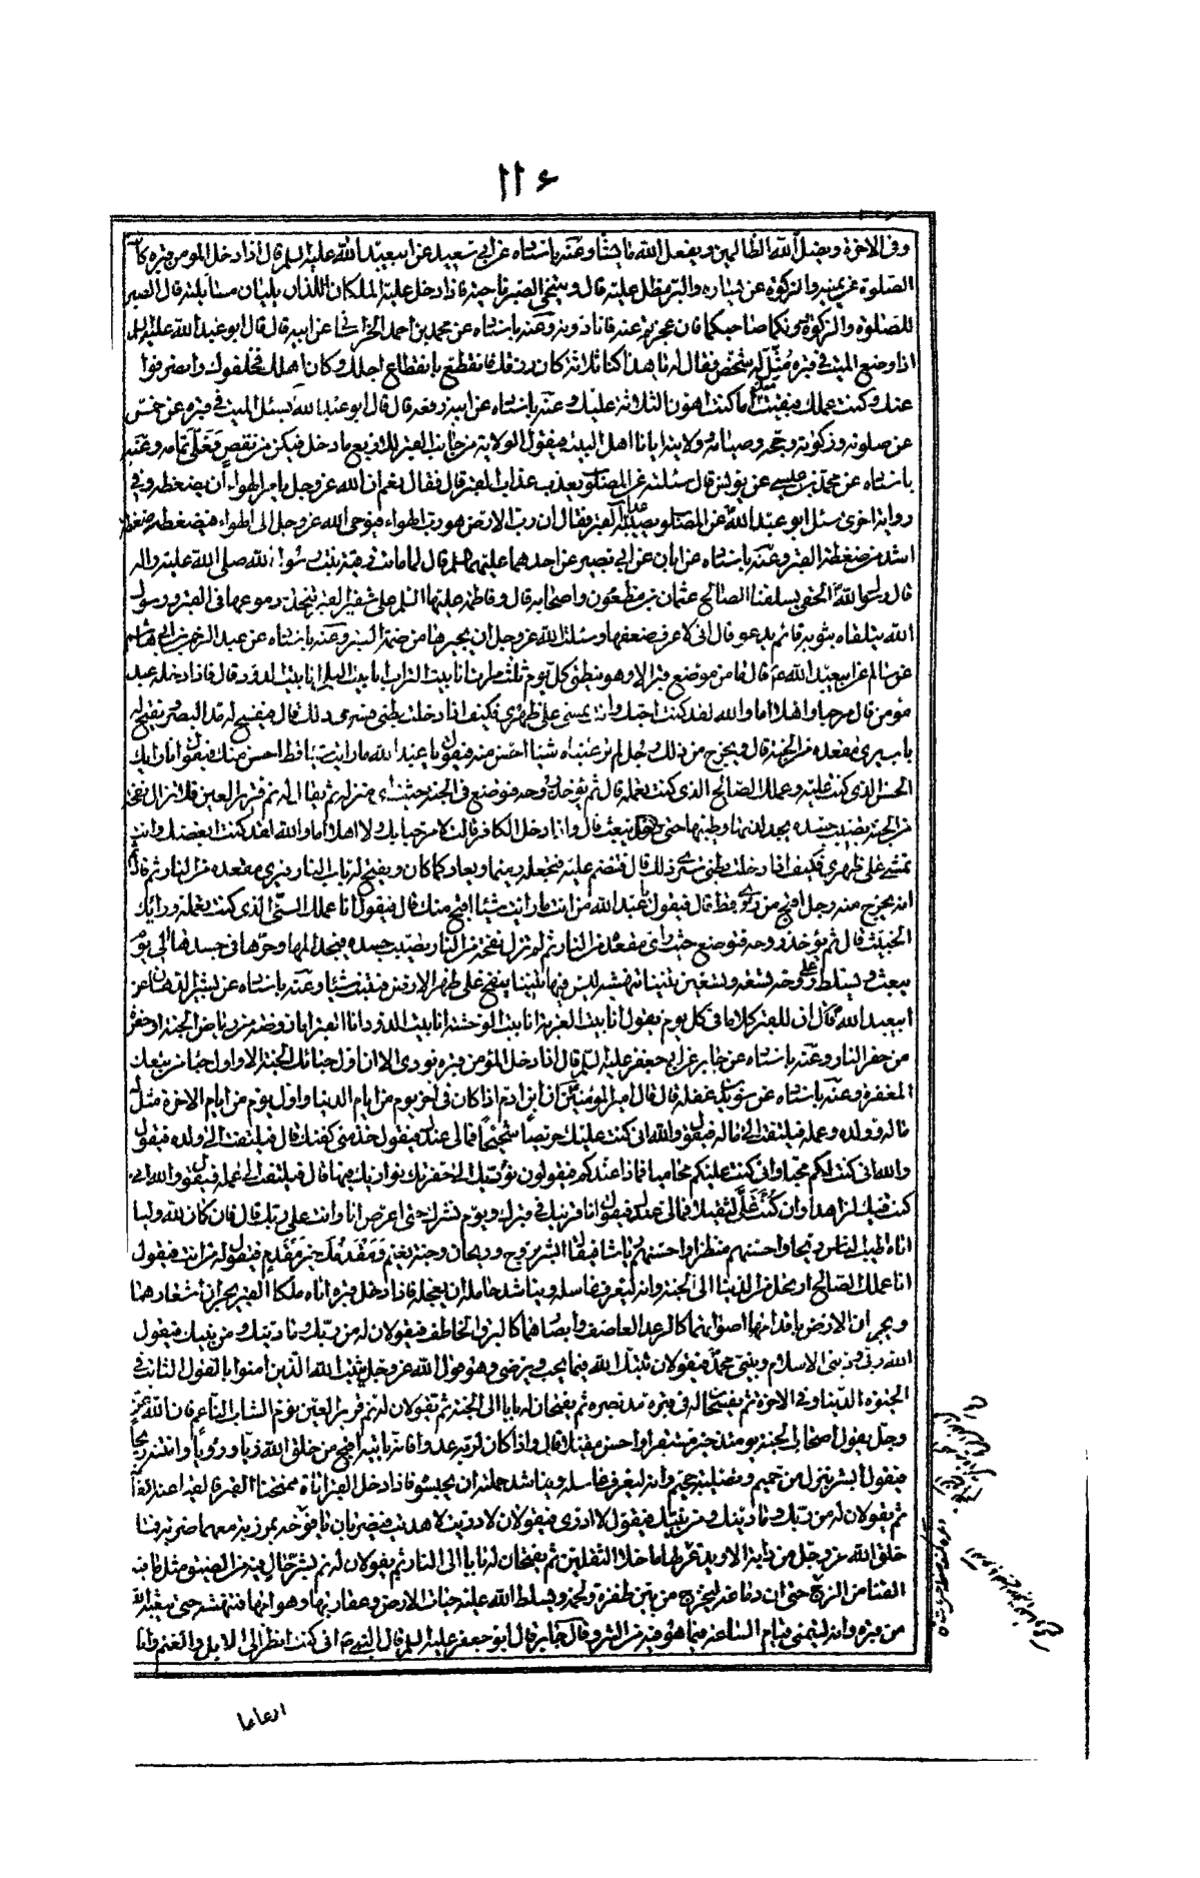 ١١٤
وفى الاخرة ويضل الله الظالمين ويفعل الله ما يشاء وعنه باسناده عن ابى سعيد عن ابيعبد الله عليه السلم قال اذا دخل المومن قبره كانت
الصلوة عن يمينه والزكوة عن يساره والبر مظل عليه قال ويتنحى الصبر ناحية فاذا دخل عليه الملكان اللذان يليان مسائلته قال الصبر
للصلوة والزكوة دونكما صاحبكما فان عجزتم عنه فانا دونه وعنه باسناده عن محمد بن احمد الخراسانى عن ابيه قال قال ابو عبد الله عليه السلم
اذا وضع الميت فى قبره مثل له شخص فقال له يا هذا كنا ثلاثة كان رزقك فانقطع بانقطاع اجلك وكان اهلك فخلفوك وانصرفوا
عنك وكنت عملك فبقيت معك اما كنت اهون الثلاثة عليك وعنه باسناده عن ابيه رفعه قال قال ابو عبد الله يسئل الميت فى قبره عن خمس
عن صلوته وزكوته وحجه وصيامه وولايته ايانا اهل البيت فيقول الولاية من جانب القبر للاربع ما دخل فيكن من نقص فعلى تمامه وعنه
باسناده عن محمد بن عيسى عن يونس قال سئلته عن المصلوب يعذب عذاب القبر قال فقال نعم ان الله عز وجل يامر الهواء ان يضغطه وفى
رواية اخرى سئل ابو عبد الله عن المصلوب يصيبه عذاب القبر فقال ان رب الارض هو رب الهواء فيوحى الله عز وجل الى الهواء فيضغطه ضغطة
اشد من ضغطة القبر وعنه باسناده عن ابان عن ابى بصير عن احدهما عليهما السلم قال لما ماتت رقية بنت رسول الله صلى الله عليه واله
قال رسول الله الحقى بسلفنا الصالح عثمان بن مظعون واصحابه قال وفاطمة عليها السلم على شفير القبر تنحدر دموعها فى القبر ورسول
الله يتلقاه بثوبه قائم يدعو قال انى لاعرف ضعفها وسئلت الله عز وجل ان يجيرها من ضمة القبر وعنه باسناده عن عبد الرحمن بن ابى هاشم
عن سالم عن ابيعبد الله ع قال ما من موضع قبر الا وهو ينطق كل يوم ثلث مرات انا بيت التراب انا بيت البلا انا بيت الدود قال فاذا دخله عبد
مومن قال مرحبا واهلا اما والله لقد كنت احبك وانت تمشى على ظهرى فكيف اذا دخلت بطنى فسترى ذلك قال فيفسح له مد البصر ويفتح له
باب يرى مقعده من الجنة قال ويخرج من ذلك رجل لم تر عيناه شيئا احسن منه فيقول يا عبد الله ما رايت شيئا قط احسن منك فيقول انا رايك
الحسن الذى كنت عليه وعملك الصالح الذى كنت تعمله قال ثم تؤخذ روحه فتوضع فى الجنة حيث راى منزله ثم يقال له نم قرير العين فلا تزال نفحة
من الجنة تصيب جسده يجد لذتها وطيبها حتى يبعث قال واذا دخل الكافر قالت لا مرحبا بك ولا اهلا اما والله لقد كنت ابغضك وانت
تمشى على ظهرى فكيف اذا دخلت بطنى سترى ذلك قال فتضم عليه فتجعله رميما ويعاد كما كان ويفتح له باب الى النار فيرى مقعده من النار ثم قال
انه يخرج منه رجل اقبح من راى قط قال فيقول يا عبد الله من انت ما رايت شيئا اقبح منك قال فيقول انا عملك السيئ الذى كنت تعمله ورايك
الخبيث قال ثم تؤخذ روحه فتوضع حيث راى مقعده من النار ثم لم تزل نفخة من النار تصيب جسده فيجد المها وحرها فى جسده الى يوم
يبعث ويسلط على روحه تسعة وتسعين تنينا تنهشه ليس فيها تنين ينفخ على ظهر الارض فتنبت شيئا وعنه باسناده عن بشير الدهان عن
ابيعبد الله قال ان للقبر كلاما فى كل يوم يقول انا بيت الغربة انا بيت الوحشة انا بيت الدود انا القبر انا روضة من رياض الجنة او حفرة
من حفر النار وعنه باسناده عن جابر عن ابى جعفر عليه السلم قال اذا دخل المؤمن قبره نودى الا ان اول حبائك الجنة الا واول حباء من تبعك
المغفرة وعنه باسناده عن سويد بن غفلة قال قال امير المؤمنين ان ابن ادم اذا كان فى اخر يوم من ايام الدنيا واول يوم من ايام الاخرة مثل له
ماله وولده وعمله فيلتفت الى ماله فيقول والله انى كنت عليك حريصا شحيحا فمالى عندك فيقول خذ منى كفنك قال فيلتفت الى ولده فيقول
والله انى كنت لكم محبا وانى كنت عليكم محاميا فماذا عندكم فيقولون نؤديك الى حفرتك نواريك فيها قال فيلتفت الى عمله فيقول والله انى
كنت فيك لزاهدا وان كنت على لثقيلا فمالى عندك فيقول انا قرينك فى قبرك ويوم نشرك حتى اعرض انا وانت على ربك قال فان كان لله وليا
اتاه اطيب الناس ريحا واحسنهم منظرا واحسنهم رياشا فيقال ابشر بروح وريحان وجنة نعيم ومقدمك خير مقدم فيقول له من انت فيقول
انا عملك الصالح ارتحل من الدنيا الى الجنة وانه ليعرف غاسله ويناشد حامله ان يعجله فاذا دخل قبره اتاه ملكا القبر يجران اشعارهما
ويجران الارض باقدامهما اصواتهما كالرعد العاصف وابصارهما كالبرق الخاطف فيقولان له من ربك وما دينك ومن نبيك فيقول
الله ربى ودينى الاسلام ونبيى محمد فيقولان ثبتك الله فيما يحب ويرضى وهو قول الله عز وجل يثبت الله الذين امنوا بالقول الثابت فى
الحيوة الدنيا وفى الاخرة ثم يفسحان له فى قبره مد بصره ثم يفتحان له بابا الى الجنة ثم يقولان له نم قرير العين نوم الشاب الناعم فان الله عز
وجل يقول اصحاب الجنة يومئذ خير مستقرا واحسن مقيلا قال واذا كان لربه عدوا فانه ياتيه اقبح من خلق الله زيا ورؤيا وانتنه ريحا
فيقول ابشر بنزل من حميم وتصلية جحيم وانه ليعرف غاسله ويناشد حملته ان يحبسوه فاذا دخل القبر اتاه ممتحنا القبر فالقيا عنه اكفانه
ثم يقولان له من ربك وما دينك ومن نبيك فيقول لا ادرى فيقولان لا دريت ولا هديت فيضربان يافوخه بمرزبة معهما ضربة ما
خلق الله عز وجل من دابة الا ويذعر لها ما خلا الثقلين ثم يفتحان له بابا الى النار ثم يقولان له نم بشر حال فيه من الضيق مثل ما فيه
القنا من الزج حتى ان دماغه ليخرج من بين ظفره ولحمه ويسلط الله عليه حيات الارض وعقاربها وهوامها فتنهشه حتى يبعثه الله
من قبره وانه ليتمنى قيام الساعة فيما هو فيه من الشر وقال جابر قال ابو جعفر عليه السلم قال النبى ص انى كنت انظر الى الابل والغنم وانا
ارعاها